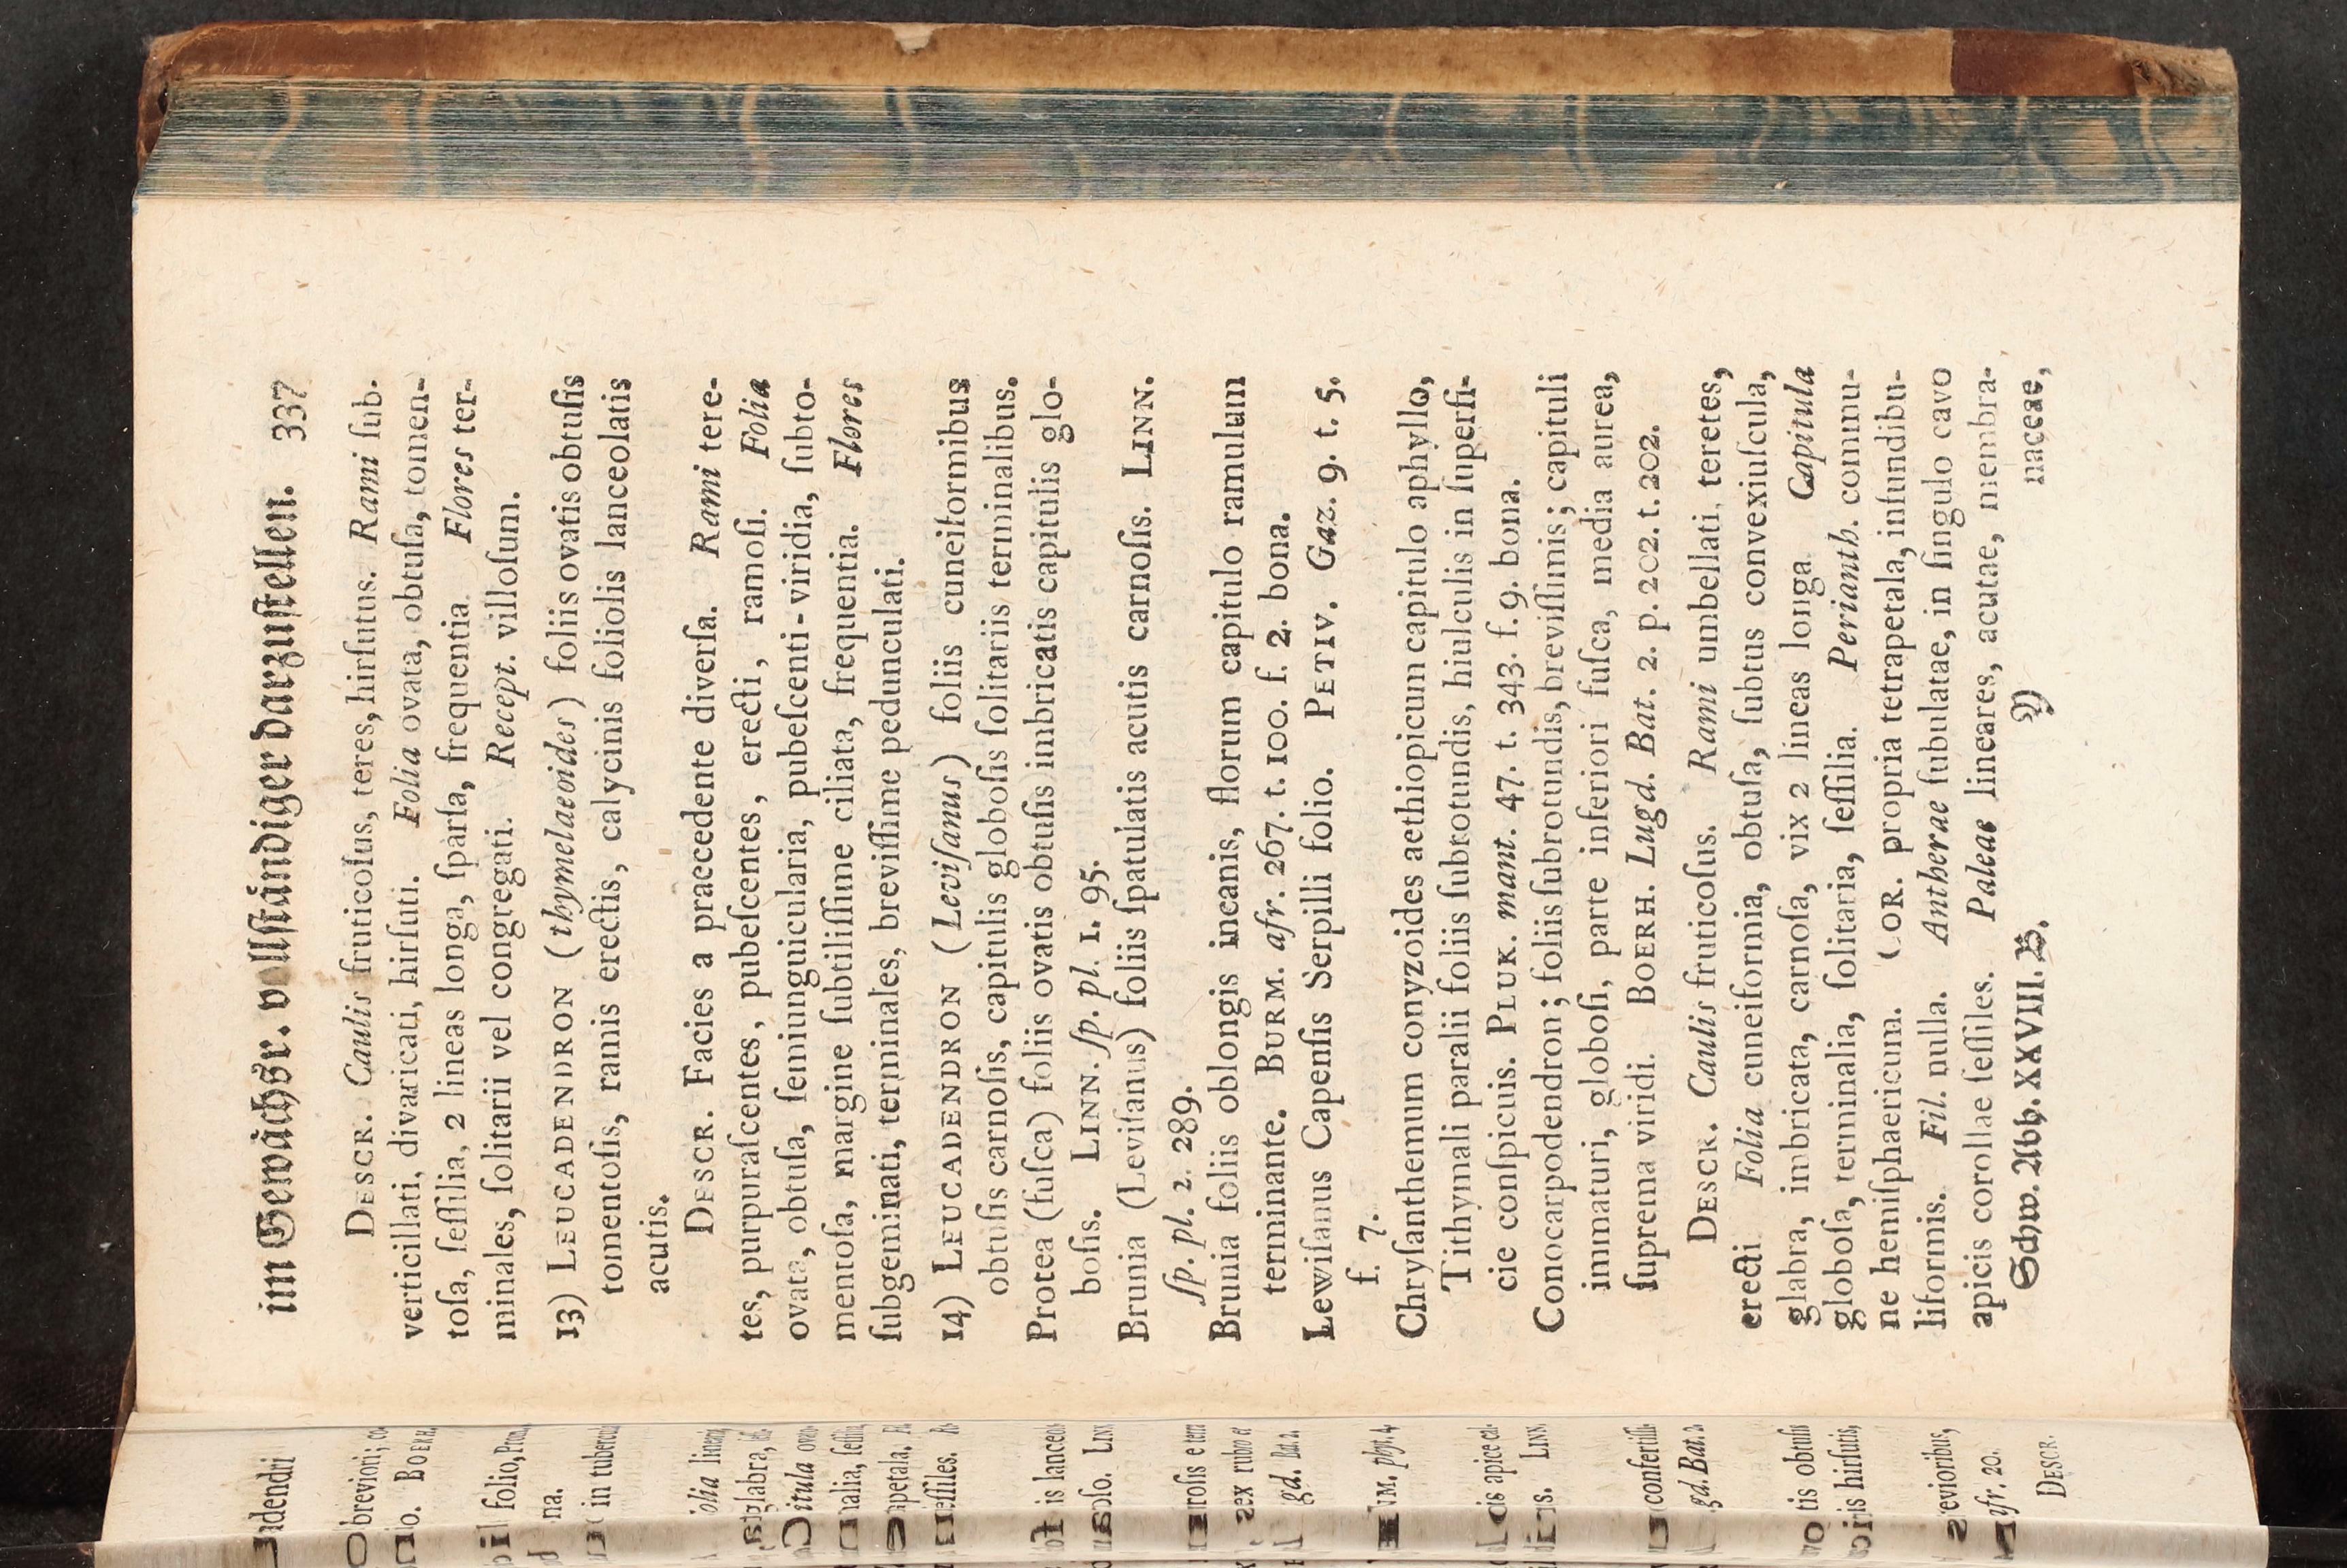 im Gewächsr. vollständiger darzustellen. 337
DESCR. Caulis fruticoſus, teres, hirſutus. Rami ſub-
verticillati, divaricati, hirſuti. Folia ovata, obtuſa, tomen-
toſa, ſeſſilia, 2 lineas longa, ſparſa, frequentia. Flores ter-
minales, ſolitarii vel congregati. Recept. villoſum.
13) LEUCADENDRON (thymelaeoides) foliis ovatis obtuſis
tomentoſis, ramis erectis, calycinis foliolis lanceolatis
acutis.
DESCR. Facies a praecedente diverſa. Rami tere-
tes, purpuraſcentes, pubeſcentes, erecti, ramoſi. Folia
ovata, obtuſa, ſemiunguicularia, pubeſcenti-viridia, ſubto-
mentoſa, margine ſubtiliſſime ciliata, frequentia. Flores
ſubgeminati, terminales, breviſſime pedunculati.
14) LEUCADENDRON (Leviſanus) foliis cuneiformibus
obtuſis carnoſis, capitulis globoſis ſolitariis terminalibus.
Protea (fuſca) foliis ovatis obtuſis imbricatis capitulis glo-
boſis. LINN. ſp. pl. 1. 95.
Brunia (Leviſanus) foliis ſpatulatis acutis carnoſis. LINN.
ſp. pl. 2. 289.
Brunia foliis oblongis incanis, florum capitulo ramulum
terminante. BURM. afr. 267. t. 100. f. 2. bona.
Lewiſanus Capenſis Serpilli folio. PETIV. Gaz. 9. t. 5.
f. 7.
Chryſanthemum conyzoides aethiopicum capitulo aphyllo,
Tithymali paralii foliis ſubrotundis, hiulculis in ſuperfi-
cie conſpicuis. PLUK. mant. 47. t. 343. f. 9. bona.
Conocarpodendron; foliis ſubrotundis, breviſſimis; capituli
immaturi, globoſi, parte inferiori fuſca, media aurea,
ſuprema viridi. BOERH. Lugd. Bat. 2. p. 202. t. 202.
DESCR. Caulis fruticoſus. Rami umbellati, teretes,
erecti. Folia cuneiformia, obtuſa, ſubtus convexiuſcula,
glabra, imbricata, carnoſa, vix 2 lineas longa. Capitula
globoſa, terminalia, ſolitaria, ſeſſilia. Perianth. commu-
ne hemiſphaericum. COR. propria tetrapetala, infundibu-
liformis. Fil. nulla. Antherae ſubulatae, in ſingulo cavo
apicis corollae ſeſſiles. Paleae lineares, acutae, membra-
Schw. Abh. XXVIII. B. Y naceae,
adendri
breviori; co
io. BOERH.
folio, Prun.
na.
in tubercul
olia lineari,
glabra,
itula ova-
nalia, ſeſſili
petala. Fi.
eſſiles. R.
is lanceo
oſo. LIN
roſis e ter
ex rubro e
gd. Bat. 2.
UM. phyt. 4.
is apice cal-
s. LINN.
confertiſſ-
gd. Bat. 2.
tis obtuſis
ris hirſutis,
evioribus,
afr. 20.
DESCR.